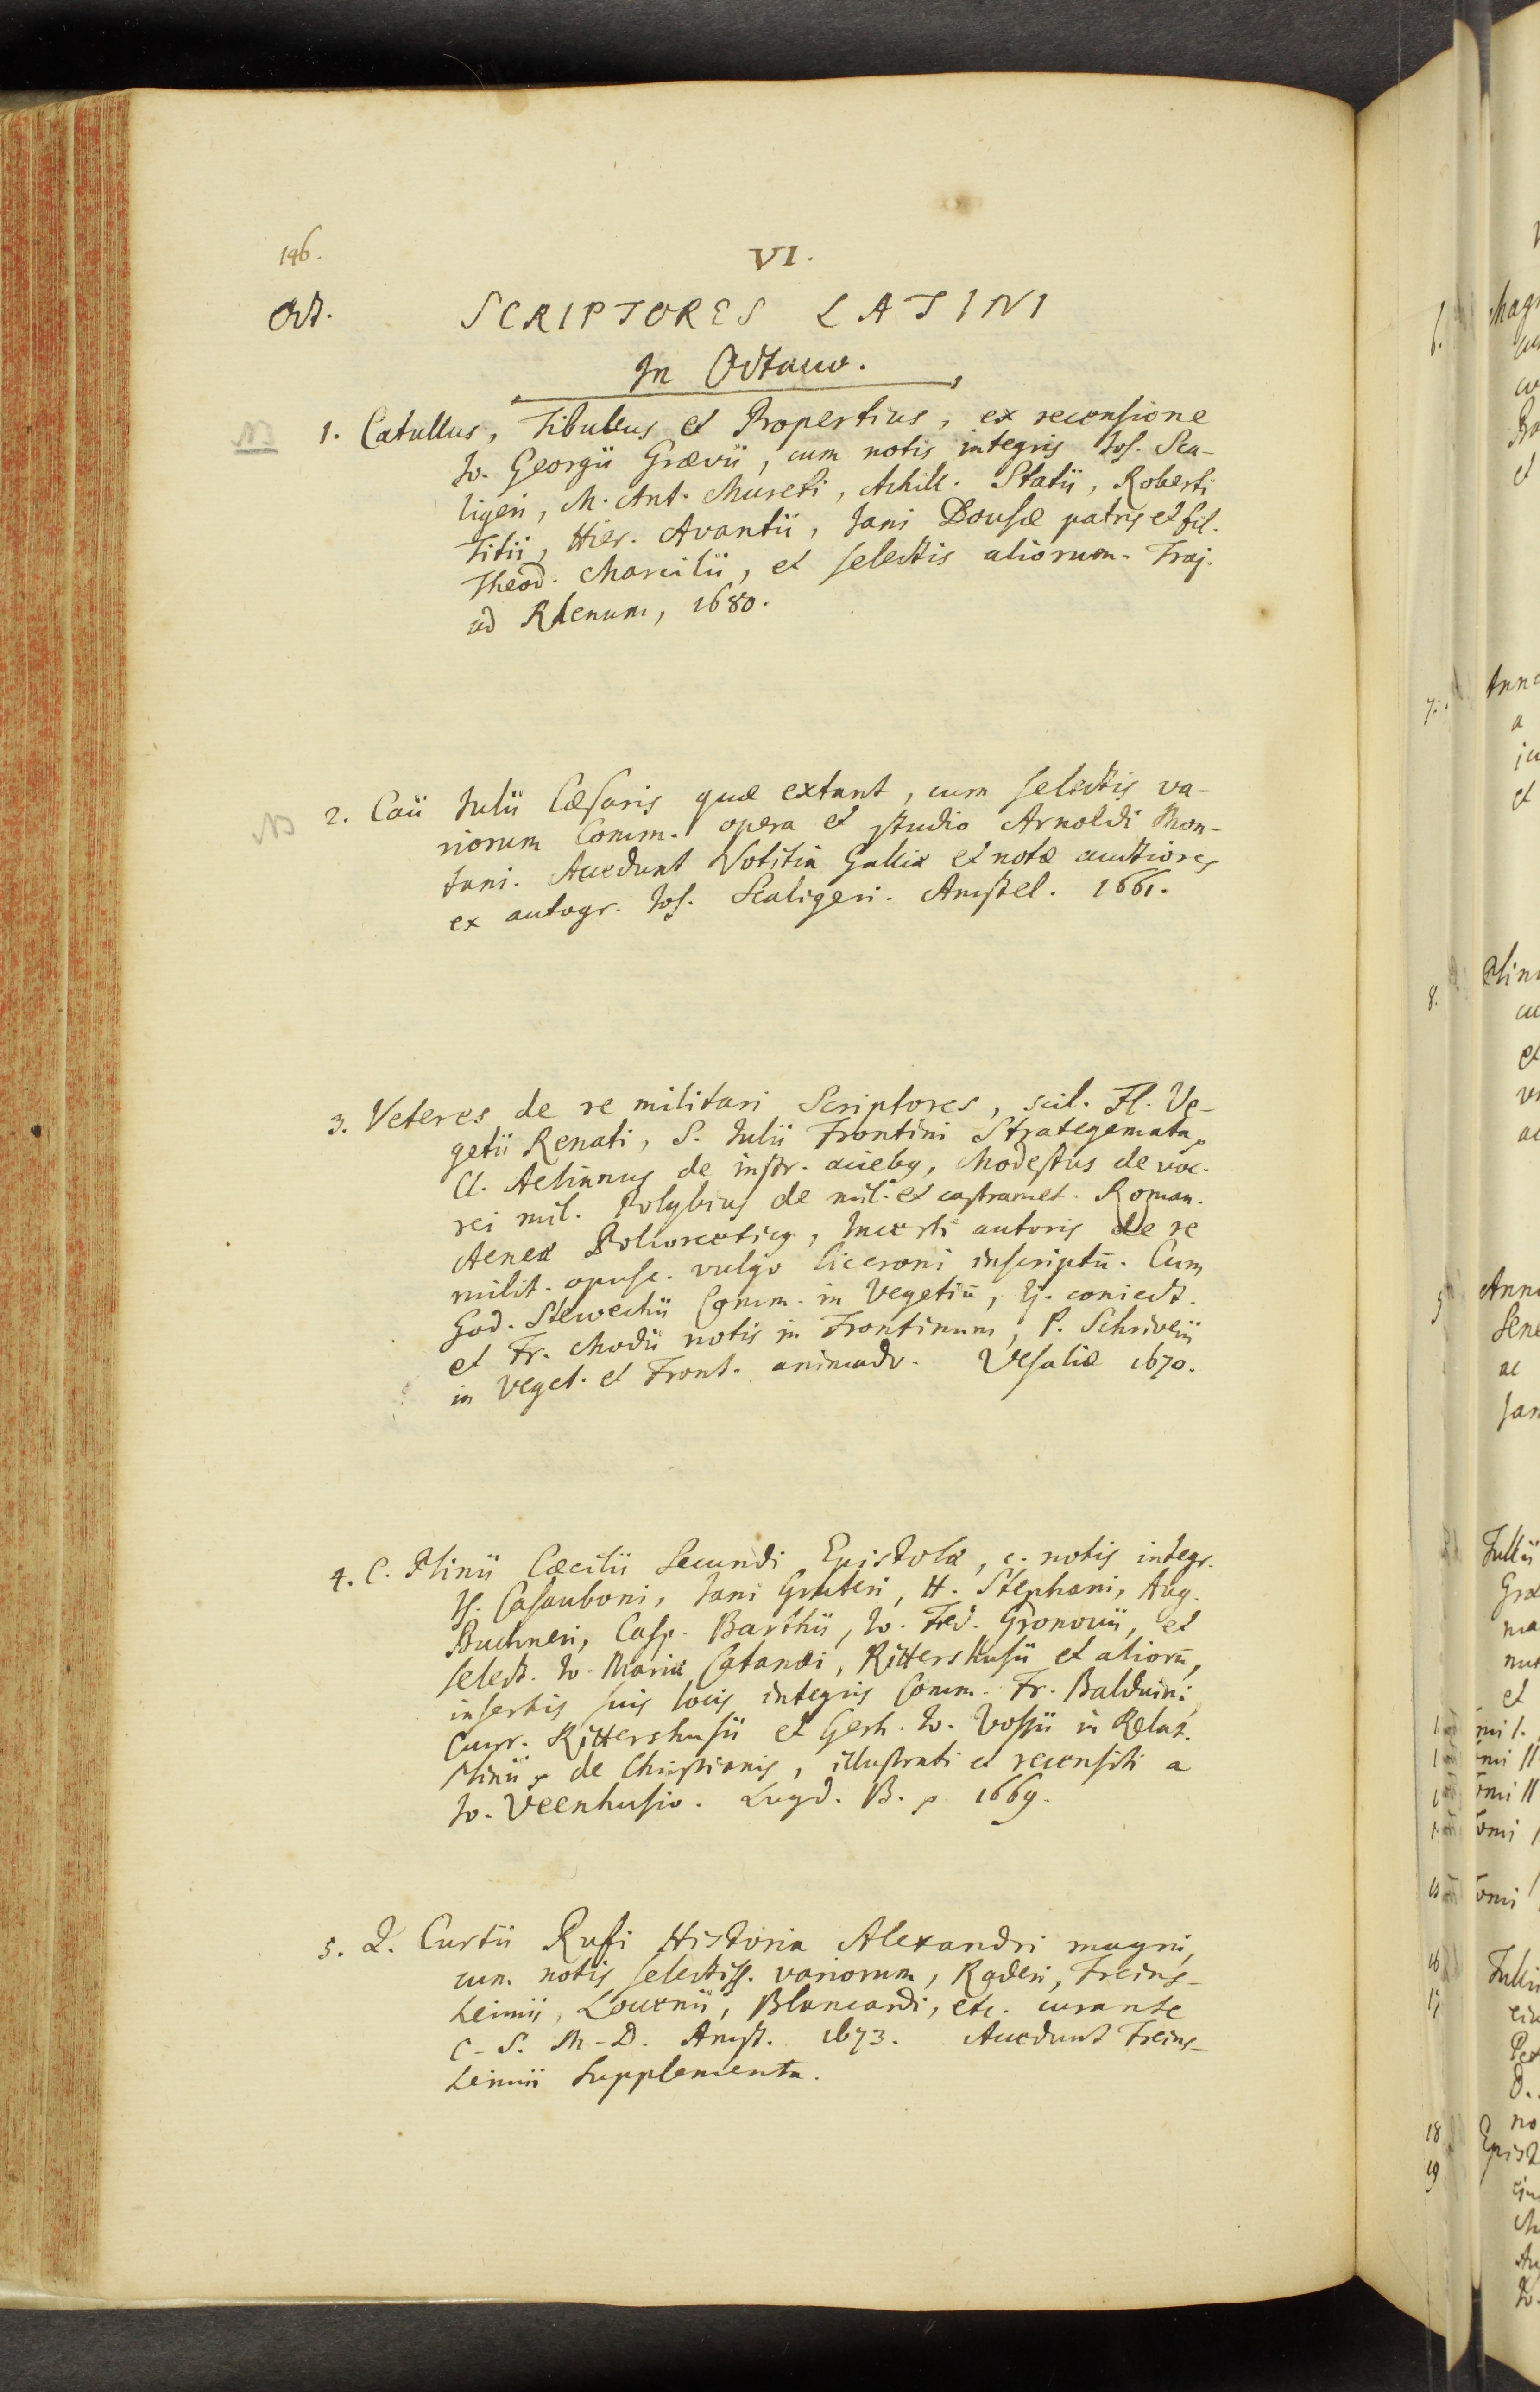 146.
VI.
Oct. SCRIPTORES LATINI
In Octauo.
NB 1. Catullus, Tibullus et Propertius, ex recensione
Io. Georgii Grævii, cum notis integris Ios. Sca-
ligeri, M. Ant. Mureti, Achill. Statii, Roberti
Titii, Hier. Avantii, Jani Dousæ patris et fil.
Theod. Marcilii, et selectis aliorum. Traj.
ad Rhenum, 1680.
NB 2. Caii Iulii Cæsaris quæ extant, cum selectis va-
riorum Comm. opera et studio Arnoldi Mon-
tani. Accedunt Notitia Galliæ et notæ auctiores
ex autogr. Jos. Scaligeri. Amstel. 1661.
3. Veteres de re militari Scriptores, scil. Fl. Ve-
getii Renati, S. Iulii Frontini Strategemata,
Cl. Aelianus de instr. acieb9, Modestus de voc.
rei mil. Polybius de mil. et castramet. Roman.
Aeneæ Poliorcetic9, Incerti autoris de re
milit. opusc. vulgo Ciceroni inscriptū. Cum
God. Stewechii Comm. in Vegetiū, Ej. coniect.
et Fr. Modii notis in Frontinum, P. Schriverii
in Veget. et Front. animadv. Vesaliæ 1670.
4. C. Plinii Cæcilii Secundi Epistolæ, c. notis integr.
Is. Casauboni, Jani Gruteri, H. Stephani, Aug.
Buchneri, Casp. Barthii, Io. Fred. Gronovii, et
select. Io. Mariæ Catanæi, Rittershusii et aliorū,
insertis suis locis integris Comm. Fr. Balduini,
Cunr. Rittershusii et Gerh. Io. Vossii in Relat.
Plinii de Christianis, illustrati et recensiti a
Io. Veenhusio. Lugd. B. 1669.
5. Q. Curtii Rufi Historia Alexandri magni,
cum notis selectiss. variorum, Raderi, Freins-
hemii, Loccenii, Blancardi, etc. curante
C. S. M. D. Amst. 1673. Accedunt Freins-
hemii Supplementa.